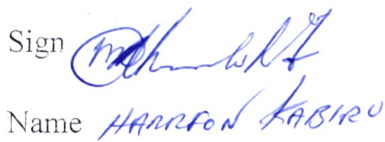 Sign
Name HARRFON KABIRU